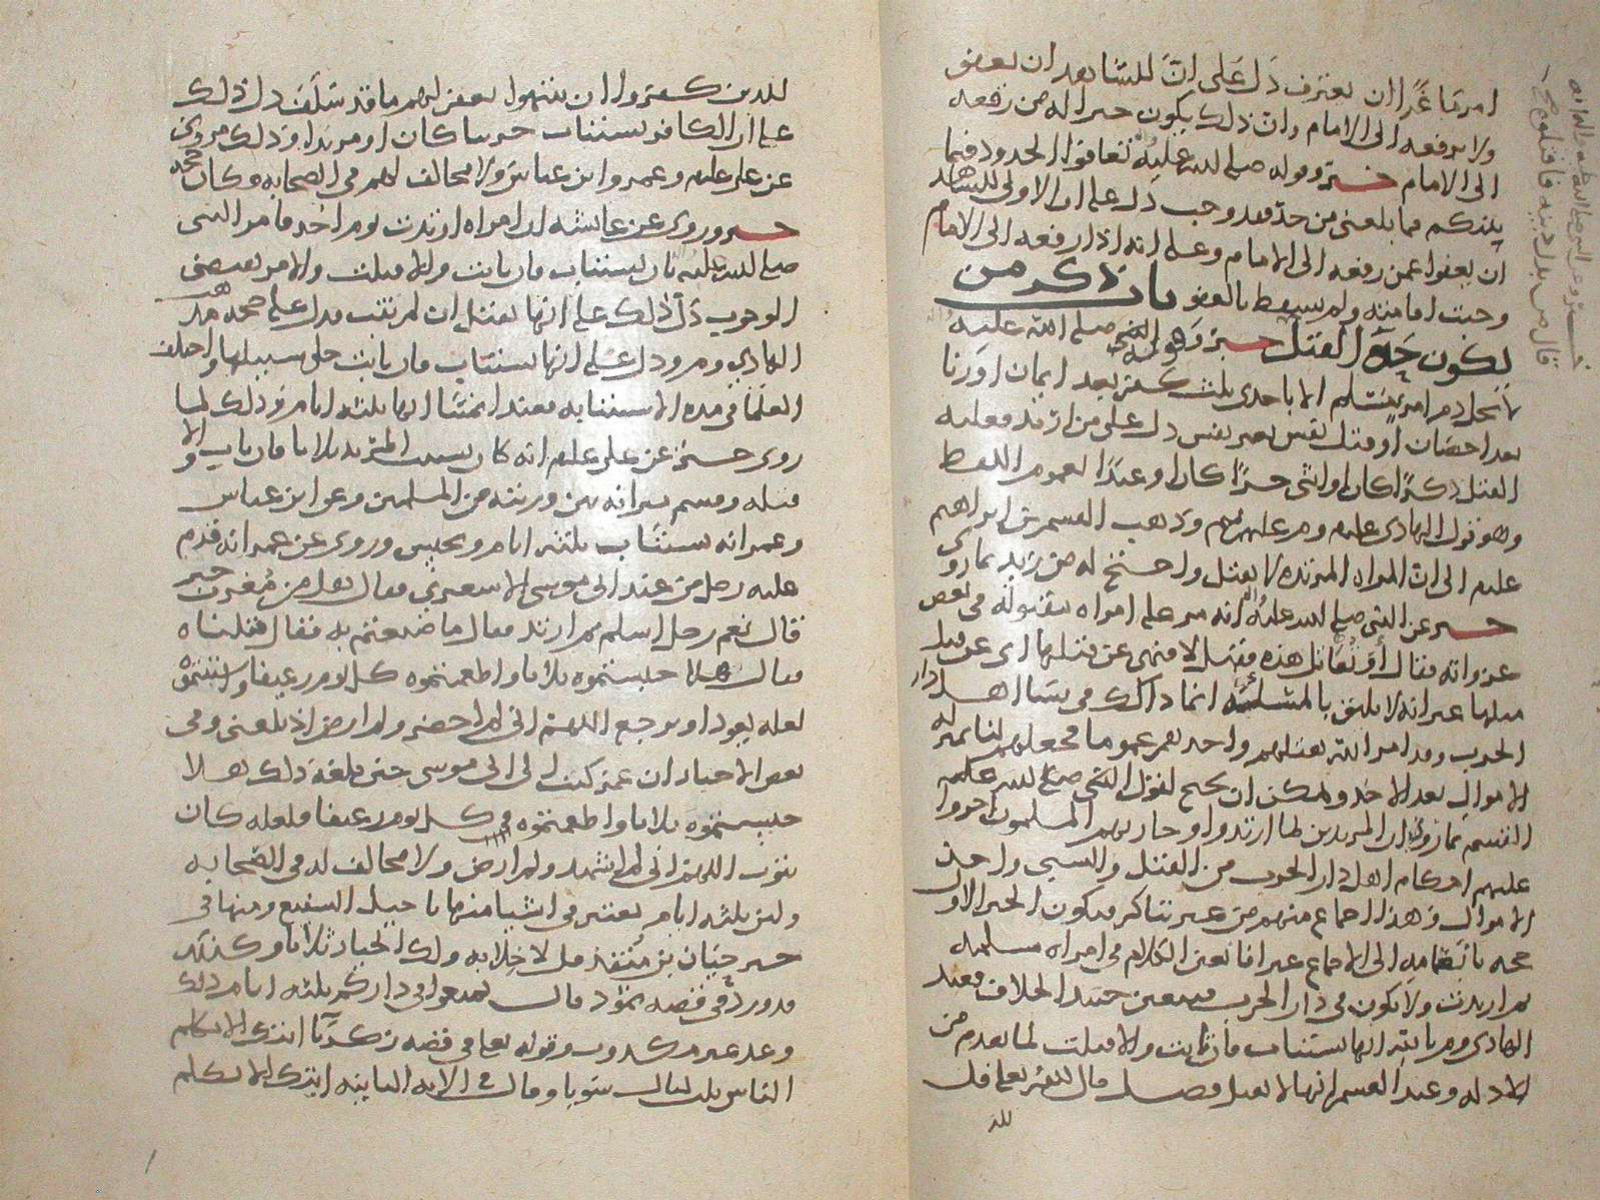 امر ماعزا ان يعترف دل على ان للشاهد ان يعفو
ولا يرفعه الى الامام وان ذلك يكون خيرا له من رفعه
الى الامام خبر وقوله صلى الله عليه تعافوا الحدود فيما
بينكم فما بلغنى من حد فقد وجب دل على ان الاولى للشاهد
ان يعفوا عمن رفعه الى الامام وعلى انه اذا رفعه الى الامام
وجبت اقامته ولم يسقط بالعفو باب ذكر من
يكون حده القتل خبر وهو قول النبى صلى الله عليه
لا يحل دم امرئ مسلم الا باحدى ثلث كفر بعد ايمان او زنا
بعد احصان او قتل نفس بغير نفس دل على من ارتد فعليه
القتل ذكرا كان او انثى حرا كان او عبدا لعموم اللفظ
وهو قول الهادى عليلم ومر عليهم لهم وذهب القسم بن ابراهيم
عليلم الى ان المراه المرتده لا يقتل واحتج له من زيد بما روى
خبر عن النبى صلى الله عليه انه مر على امراه مقتوله فى بعض
غزواته فقال او تقاتل هذه فقيل لا فنهى عن قتلها اى عن قتل
مثلها غير انه لا يليق بالمسئله انما ذاك فى نسا اهل دار
الحرب وقد امر الله بقتلهم واحد بعد عموما فجعلهم لنا بمنزله
الاموال بعد الاخذ ويمكن ان يحتج لقول النبى صلى الله عليه
القسم بما روى ان المرتدين لما ارتدوا وحاربهم المسلمون اجروا
عليهم احكام اهل دار الحرب من القتل والسبى واخذ
الاموال فهذا اجماع منهم من غير تناكر فيكون الخبر الاول
حجه بانضمامه الى الاجماع غير انا نعنى الكلام فى امراه مسلمه
ثم ارتدت ولا يكون فى دار الحرب فيتعين حينئذ الخلاف فعند
الهادى ومر بالله انها تستتاب فان تابت والا قتلت لما تقدم من
الادله وعند القسم انها لا تقتل فصل قال الله تعالى قل
للذ
خبر وعن النبى صلى الله عليه واله انه
قال من بدل دينه فاقتلوه
للذين كفروا ان ينتهوا يغفر لهم ما قد سلف دل ذلك
على ان الكافر يستتاب حربيا كان او مرتدا وذلك مروى
عن على عليلم وعمر وابن عباس ولا مخالف لهم فى الصحابه وكان حجه
خبر وروى عن عائشه ان امراه ارتدت يوم احد فامر النبى
صلى الله عليه بان يستتاب فان تابت والا قتلت والامر يقتضى
الوجوب دل ذلك على انها تقتل ان لم تتب فدل على صحه مذهب
الهادى ومر ودل على انها تستتاب فان تابت خلى سبيلها واختلف
العلما فى مده الاستتابه فعند ايمتنا انها ثلثه ايام وذلك لما
روى خبر عن على عليلم انه كان يستتيب المرتد ثلاثا فان تاب والا
قتله وقسم ميراثه بين ورثته من المسلمين وعن ابن عباس
وعمر انه يستتاب ثلثه ايام ويحبس وروى عن عمر انه قدم
عليه رجل من عند ابى موسى الاشعرى فقال هل من مغربه خبر
قال نعم رجل اسلم ثم ارتد فقال ما صنعتم به فقال قتلناه
فقال هلا حبستموه ثلاثا واطعمتموه كل يوم رغيفا واستتبتموه
لعله يعود او يرجع اللهم انى لم احضر ولم ارض اذ بلغنى وفى
بعض الاخبار ان عمر كتب الى ابى موسى حين بلغه ذلك هلا
حبستموه ثلاثا واطعمتموه فى كل يوم رغيفا فلعله كان
يتوب اللهم انى لم اشهد ولم ارض ولا مخالف له فى الصحابه
ولان ثلثه ايام يعتبر فى اشيا منها تاجيل الشفيع ومنها فى
خبر حيان بن منقذ قل لا خلابه ولك الخيار ثلاثا وكذلك
قد ورد فى قصه ثمود قال تمتعوا فى داركم ثلثه ايام ذلك
وعد غير مكذوب وقوله تعالى فى قصه زكريا ايتك الا تكلم
الناس ثلث ليال سويا وقال فى الايه الثانيه ايتك الا تكلم